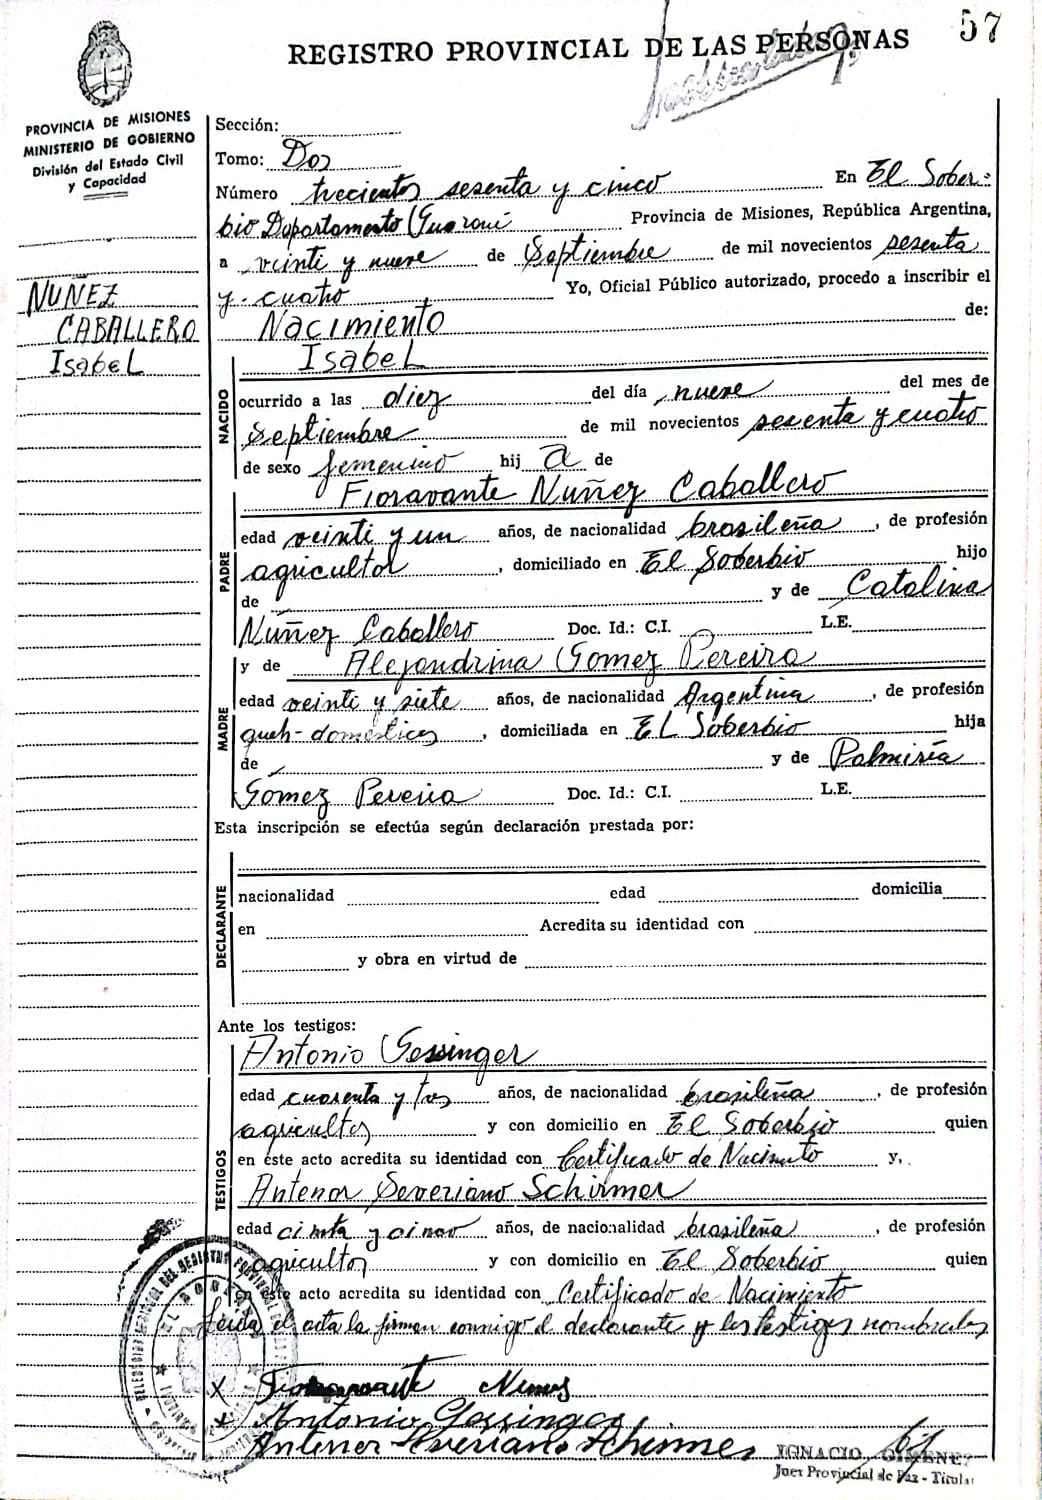 57
REGISTRO PROVINCIAL DE LAS PERSONAS
PROVINCIA DE MISIONES
MINISTERIO DE GOBIERNO
División del Estado Civil
y Capacidad
NUÑEZ
CABALLERO
Isabel
Sección:
Tomo: Dos
Número trecientos sesenta y cinco En El Sober-
bio Departamento Guaraní Provincia de Misiones, República Argentina,
a veinti y nueve de Septiembre de mil novecientos sesenta
y cuatro Yo, Oficial Público autorizado, procedo a inscribir el
Nacimiento de:
Isabel
NACIDO
ocurrido a las diez del día nueve del mes de
Septiembre de mil novecientos sesenta y cuatro
de sexo femenino hij a de
Fioravante Nuñez Caballero
PADRE
edad veinti y un años, de nacionalidad brasileña, de profesión
agricultor, domiciliado en El Soberbio hijo
de y de Catalina
Nuñez Caballero Doc. Id.: C.I. L.E.
y de Alejandrina Gomez Pereira
MADRE
edad veinti y siete años, de nacionalidad Argentina, de profesión
queh-domesticos, domiciliada en El Soberbio hija
de y de Palmiría
Gomez Pereira Doc. Id.: C.I. L.E.
Esta inscripción se efectúa según declaración prestada por:
DECLARANTE
nacionalidad edad domicilia
en Acredita su identidad con
y obra en virtud de
Ante los testigos:
TESTIGOS
Antonio Gessinger
edad cuarenta y tres años, de nacionalidad brasileña, de profesión
agricultor y con domicilio en El Soberbio quien
en este acto acredita su identidad con Certificado de Nacimto y,
Antenor Severiano Schirmer
edad y cinco años, de nacionalidad brasileña, de profesión
agricultor y con domicilio en El Soberbio quien
en este acto acredita su identidad con Certificado de Nacimiento
Leida el acta la firman conmigo el declarante y los testigos nombrados
X
Antonio Gessinger
Antenor Severiano Schirmer
IGNACIO GIMENEZ
Juez Provincial de Paz - Titular